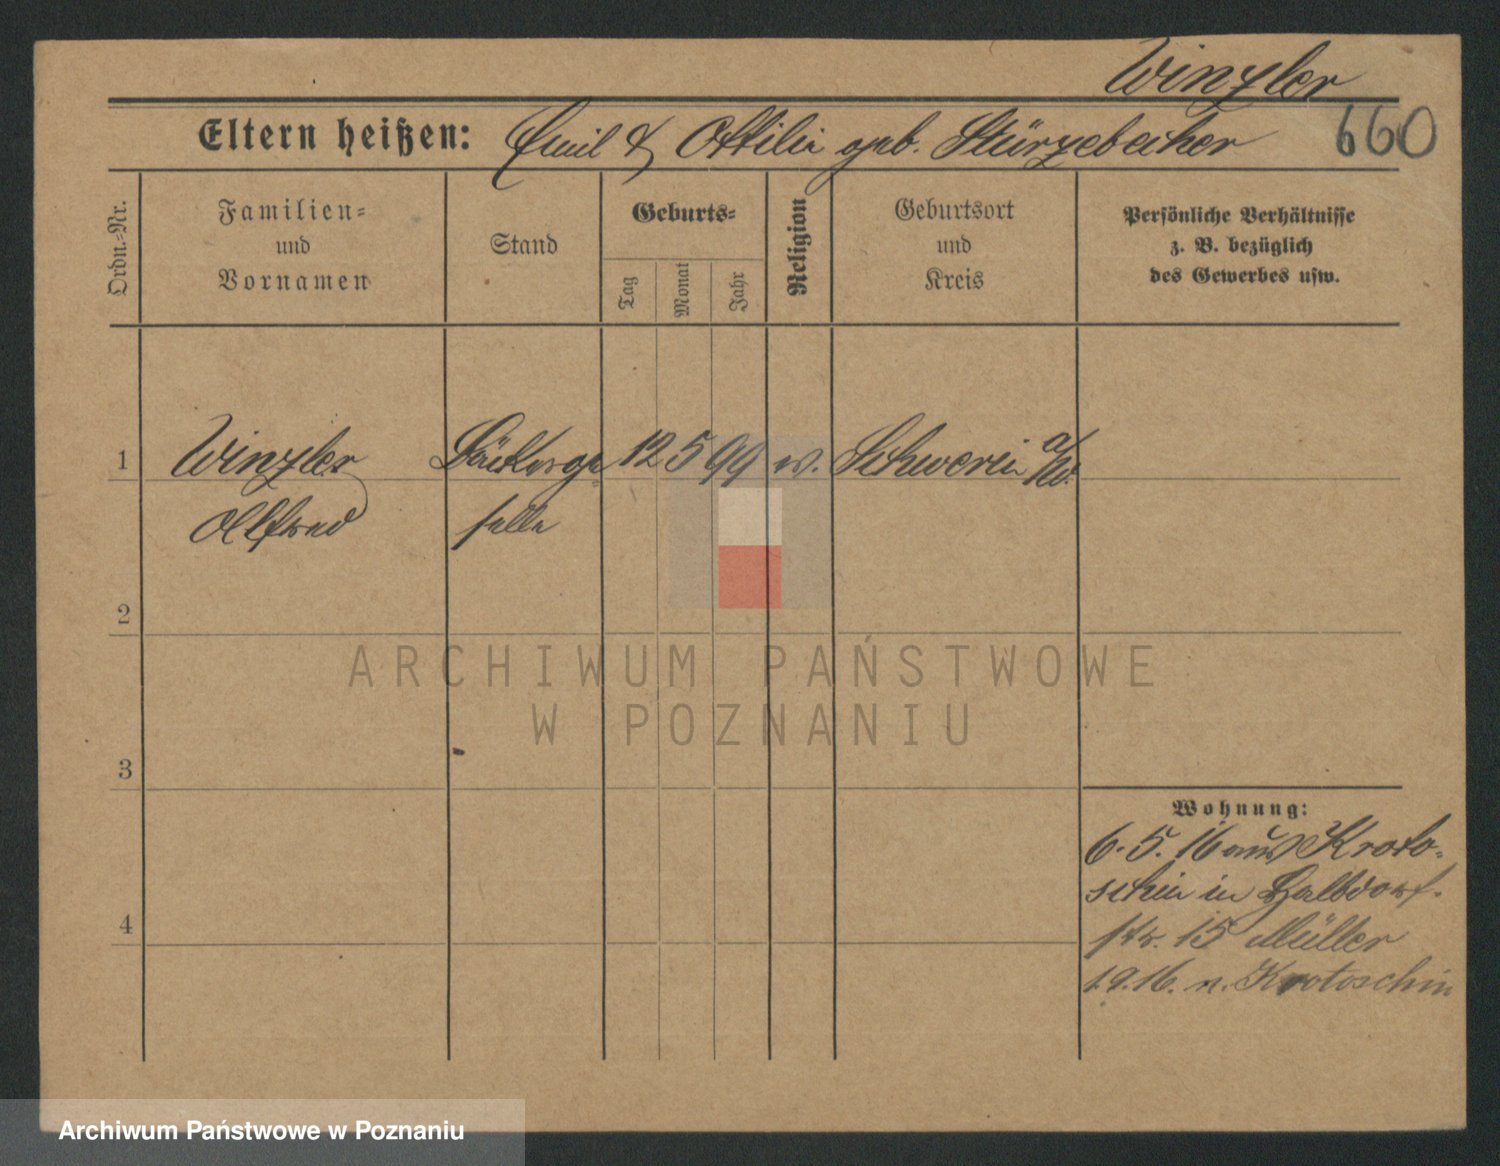 Winzler
Eltern heißen: Emil & Ottilie geb. Stürzebecher 660
Ordn.-Nr.
Familien-
und
Vornamen
Stand
Geburts-
Tag
Monat
Jahr
Religion
Geburtsort
und
Kreis
Persönliche Verhältnisse
z. B. bezüglich
des Gewerbes usw.
1 Winzler Bäckerge- 12 5 99 ev. Schwerin a/W.
Alfred selle
2
3
4
Wohnung:
6.5.16 aus Kroto-
schin in Halbdorf-
str. 15 Müller
1.9.16. n. Krotoschin
ARCHIWUM PAŃSTWOWE
W POZNANIU
Archiwum Państwowe w Poznaniu